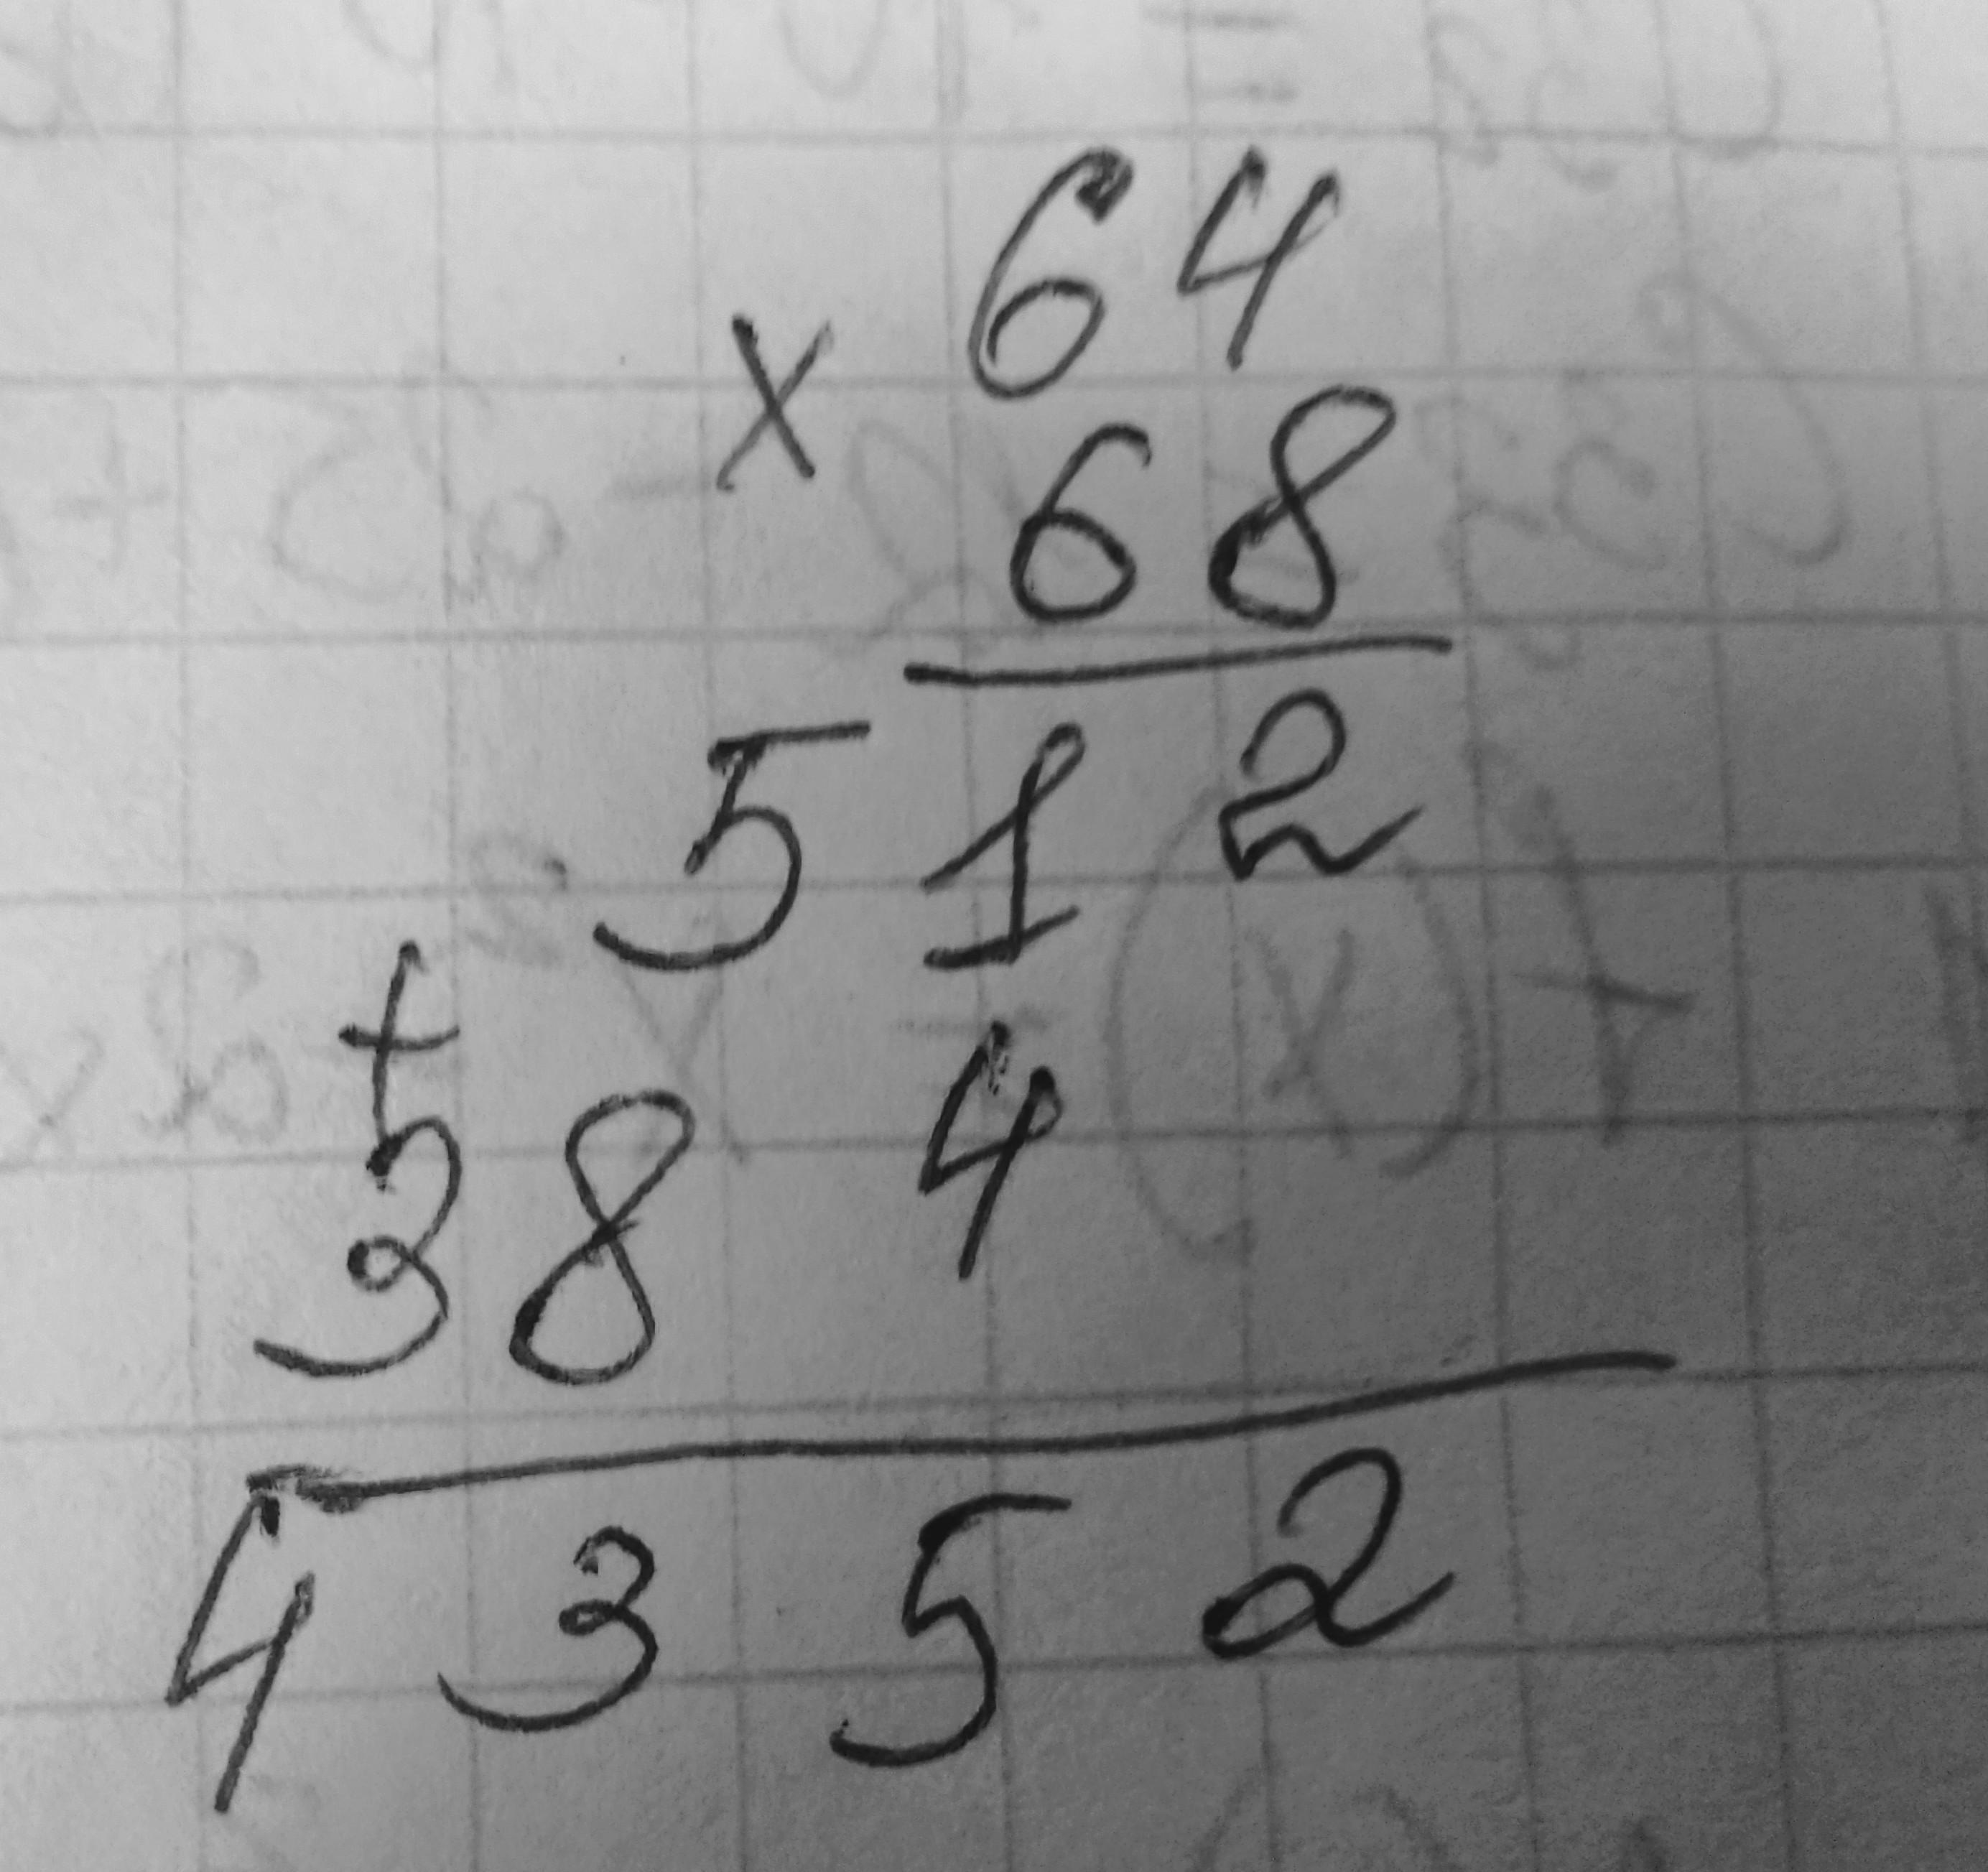 64
×
68
512
+
384
4352